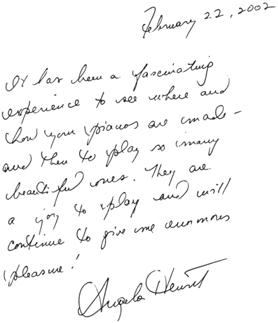 February 22, 2002
It has been a fascinating
experience to see where and
how your pianos are made –
and then to play so many
beautiful ones. They are
a joy to play and will
continue to give me enormous
pleasure!
Angela Hewitt